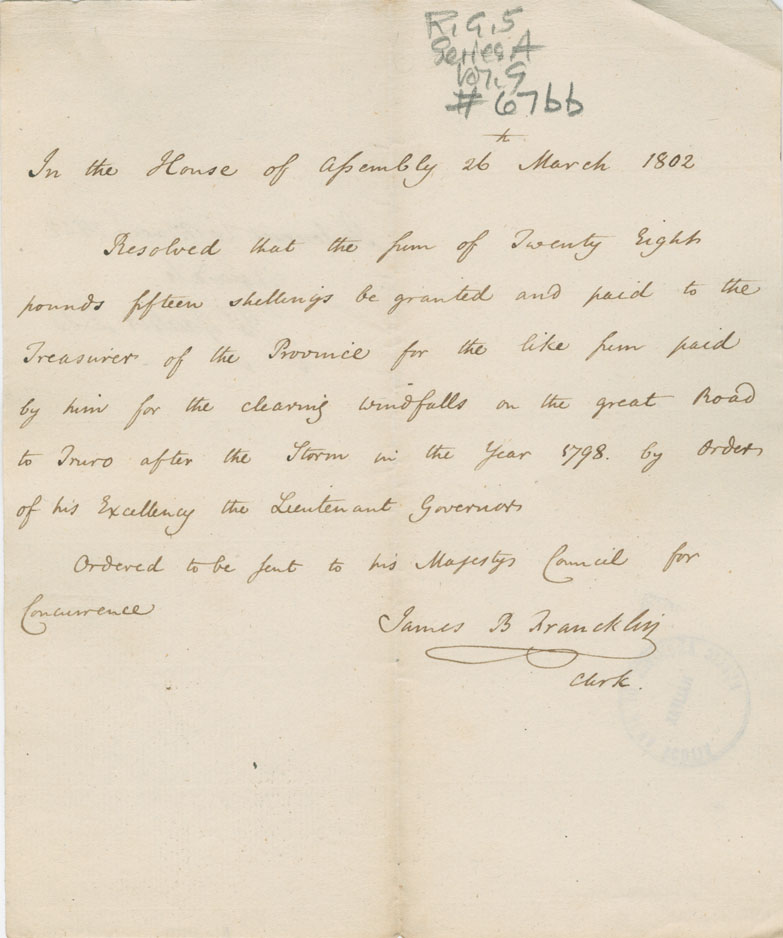 R.G.5
Series A
Vol. 9
# 67bb
In the House of Assembly 26th March 1802
Resolved that the sum of Twenty Eight
pounds fifteen shellings be granted and paid to the
Treasurer of the Province for the like sum paid
by him for the clearing windfalls on the great Road
to Truro after the Storm in the Year 1798. by Order
of his Excellency the Lieutenant Governor
Ordered to be sent to his Majestys Council for
Concurrence
James B Francklin
Clerk.